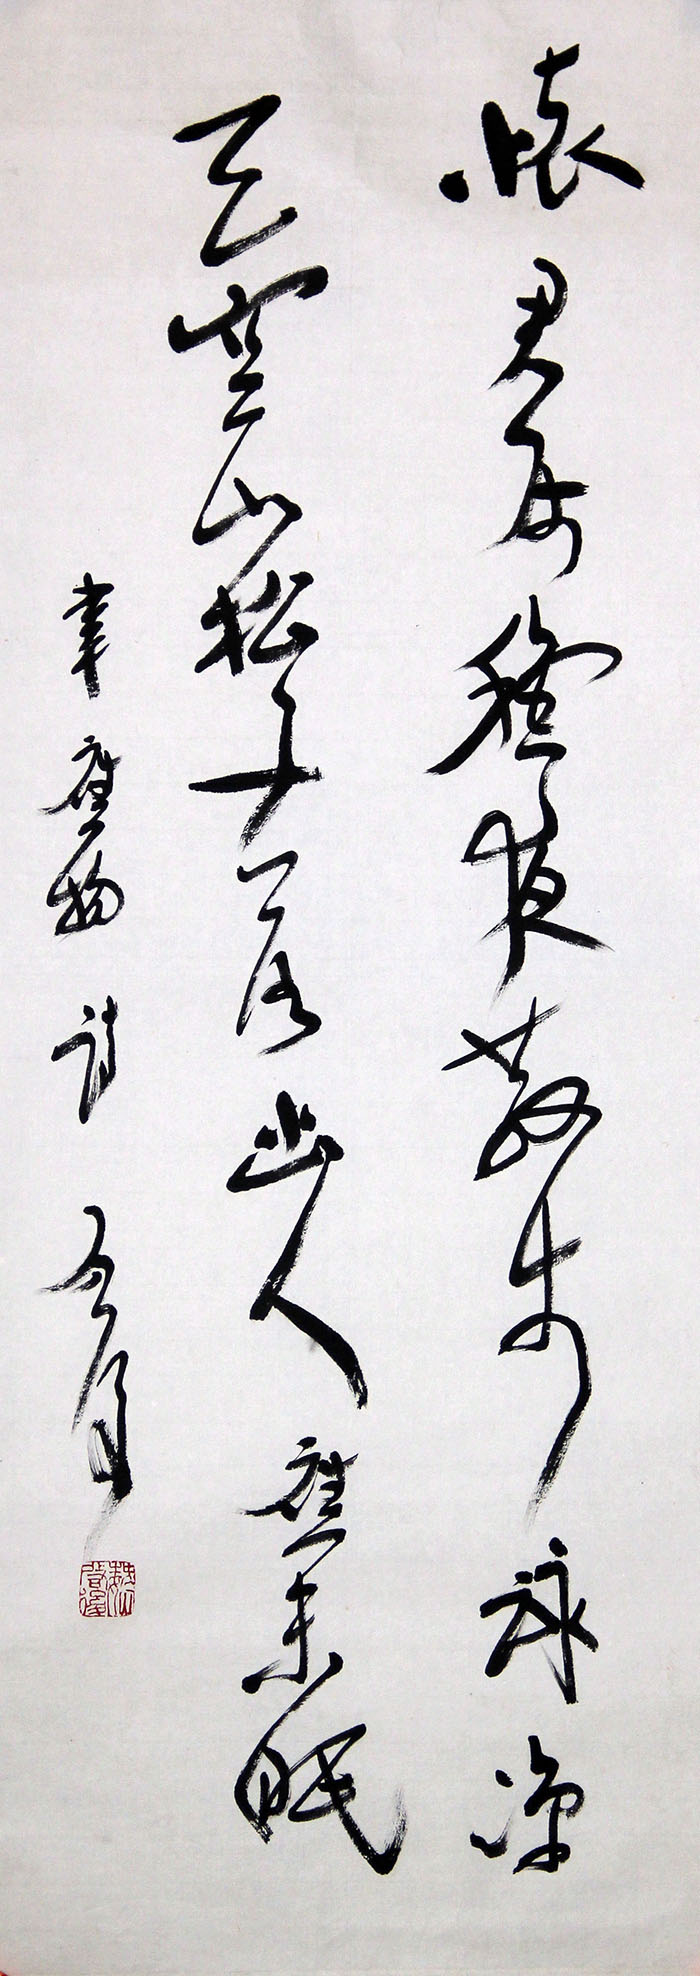 懷君屬秋夜散步詠涼
天空山松子落幽人應未眠
韋應物詩
魏啟後